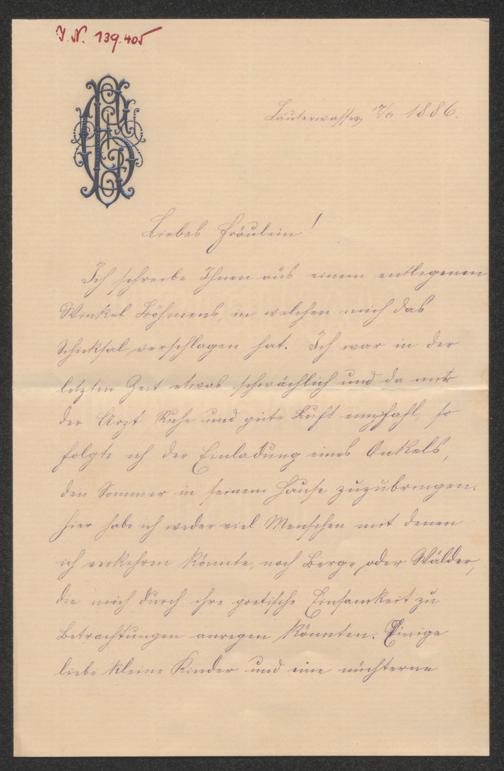 I. N. 139.405
Lauterwasser 1886.
Liebes Fräulein!
Ich schreibe Ihnen aus einem entlegenen
Winkel Böhmens, in welchen mich das
Schicksal verschlagen hat. Ich war in der
letzten Zeit etwas schwächlich und da mir
der Arzt Ruhe und gute Luft empfahl, so
folgte ich der Einladung eines Onkels,
den Sommer in seinem Hause zuzubringen.
Hier habe ich weder viel Menschen mit denen
ich verkehren könnte, noch Berge oder Wälder,
die mich durch ihre poetische Einsamkeit zu
Betrachtungen anregen könnten. Einige
liebe kleine Kinder und eine nüchterne